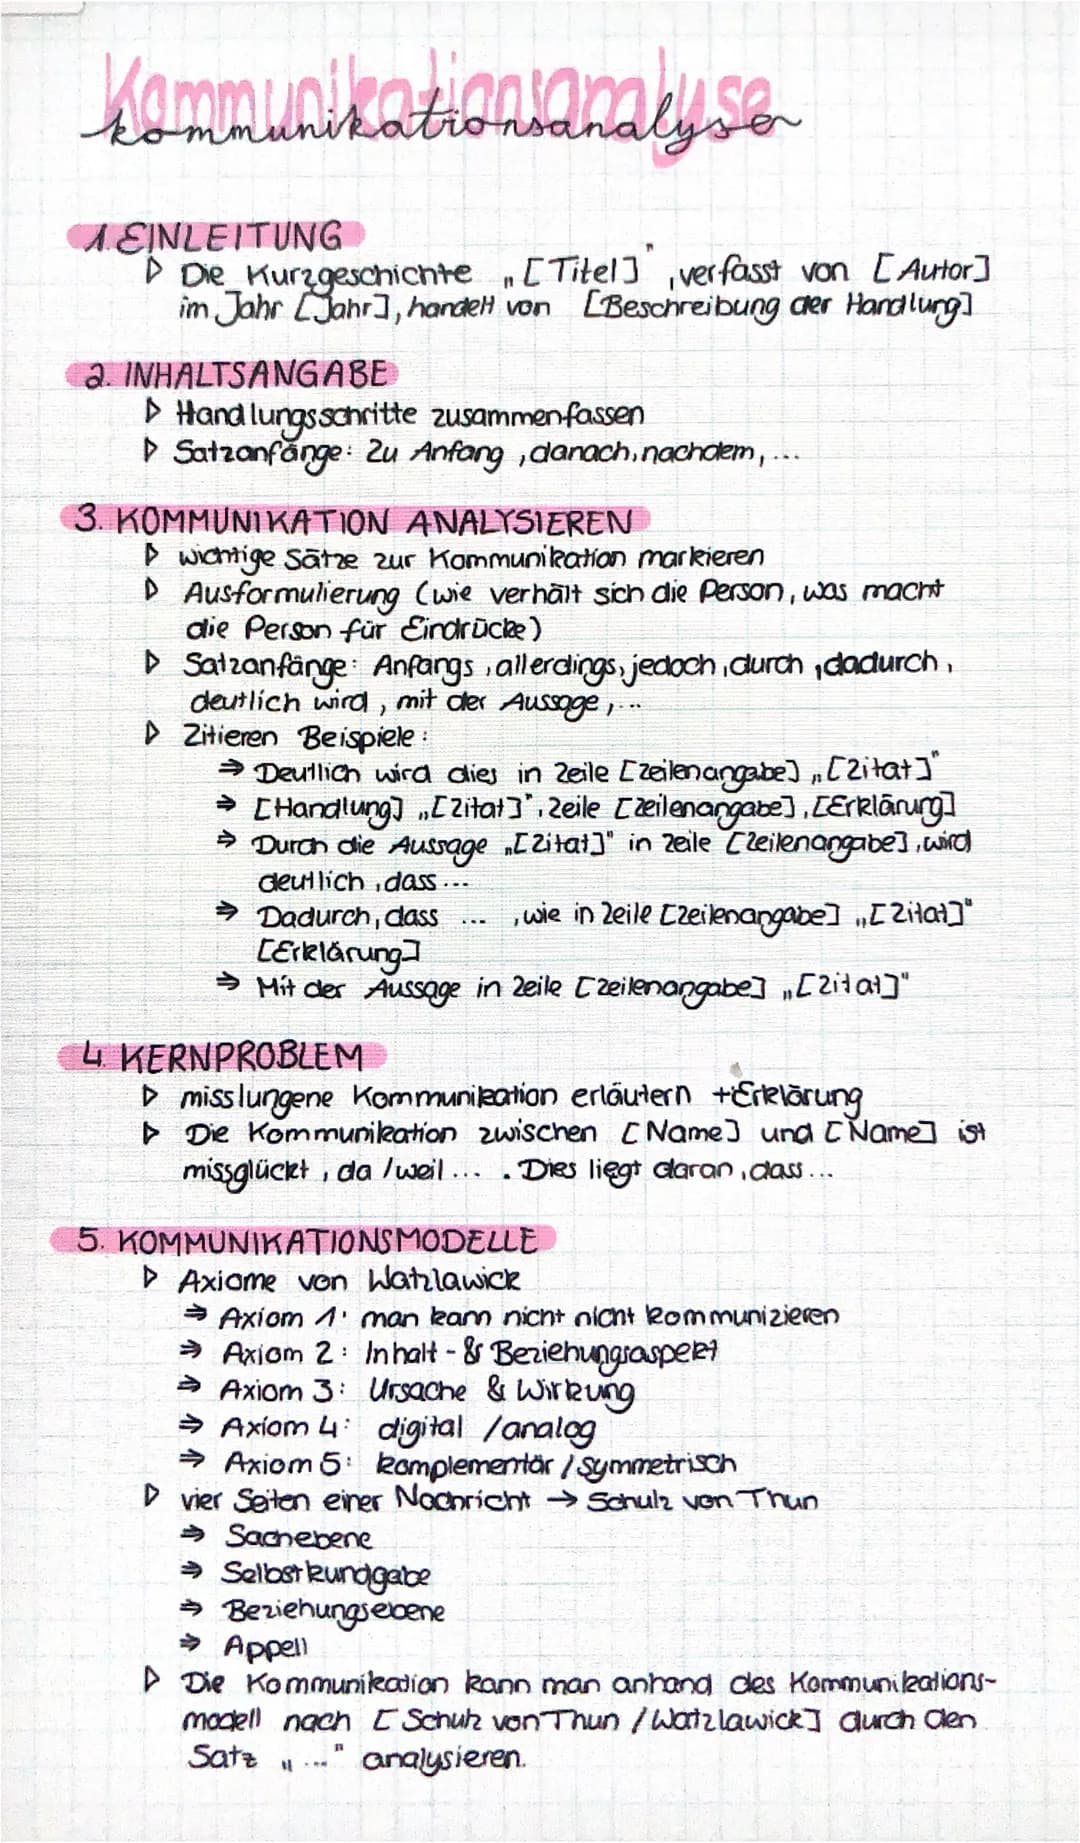 Kommunikationsanalyse
kommunikationsanalyse
1. EINLEITUNG
▷ Die Kurzgeschichte „[Titel]", verfasst von [Autor]
im Jahr [Jahr], handelt von [Beschreibung der Handlung]
2. INHALTSANGABE
▷ Handlungsschritte zusammenfassen
▷ Satzanfänge: Zu Anfang, danach, nachdem, ...
3. KOMMUNIKATION ANALYSIEREN
▷ wichtige Sätze zur Kommunikation markieren
▷ Ausformulierung (wie verhält sich die Person, was macht
die Person für Eindrücke)
▷ Satzanfänge: Anfangs, allerdings, jedoch, durch, dadurch,
deutlich wird, mit der Aussage, ...
▷ Zitieren Beispiele:
⇒ Deutlich wird dies in Zeile [Zeilenangabe] „[Zitat]"
⇒ [Handlung] „[Zitat]", Zeile [Zeilenangabe], [Erklärung]
⇒ Durch die Aussage „[Zitat]" in Zeile [Zeilenangabe], wird
deutlich, dass ...
⇒ Dadurch, dass ..., wie in Zeile [Zeilenangabe] „[Zitat]"
[Erklärung]
⇒ Mit der Aussage in Zeile [Zeilenangabe] „[Zitat]"
4. KERNPROBLEM
▷ misslungene Kommunikation erläutern + Erklärung
▷ Die Kommunikation zwischen [Name] und [Name] ist
missglückt, da / weil ... . Dies liegt daran, dass ...
5. KOMMUNIKATIONSMODELLE
▷ Axiome von Watzlawick
⇒ Axiom 1: man kann nicht nicht kommunizieren
⇒ Axiom 2: Inhalt - & Beziehungsaspekt
⇒ Axiom 3: Ursache & Wirkung
⇒ Axiom 4: digital / analog
⇒ Axiom 5: komplementär / symmetrisch
▷ vier Seiten einer Nachricht → Schulz von Thun
⇒ Sachebene
⇒ Selbstkundgabe
⇒ Beziehungsebene
⇒ Appell
▷ Die Kommunikation kann man anhand des Kommunikations-
modell nach [Schulz von Thun / Watzlawick] durch den
Satz „..." analysieren.